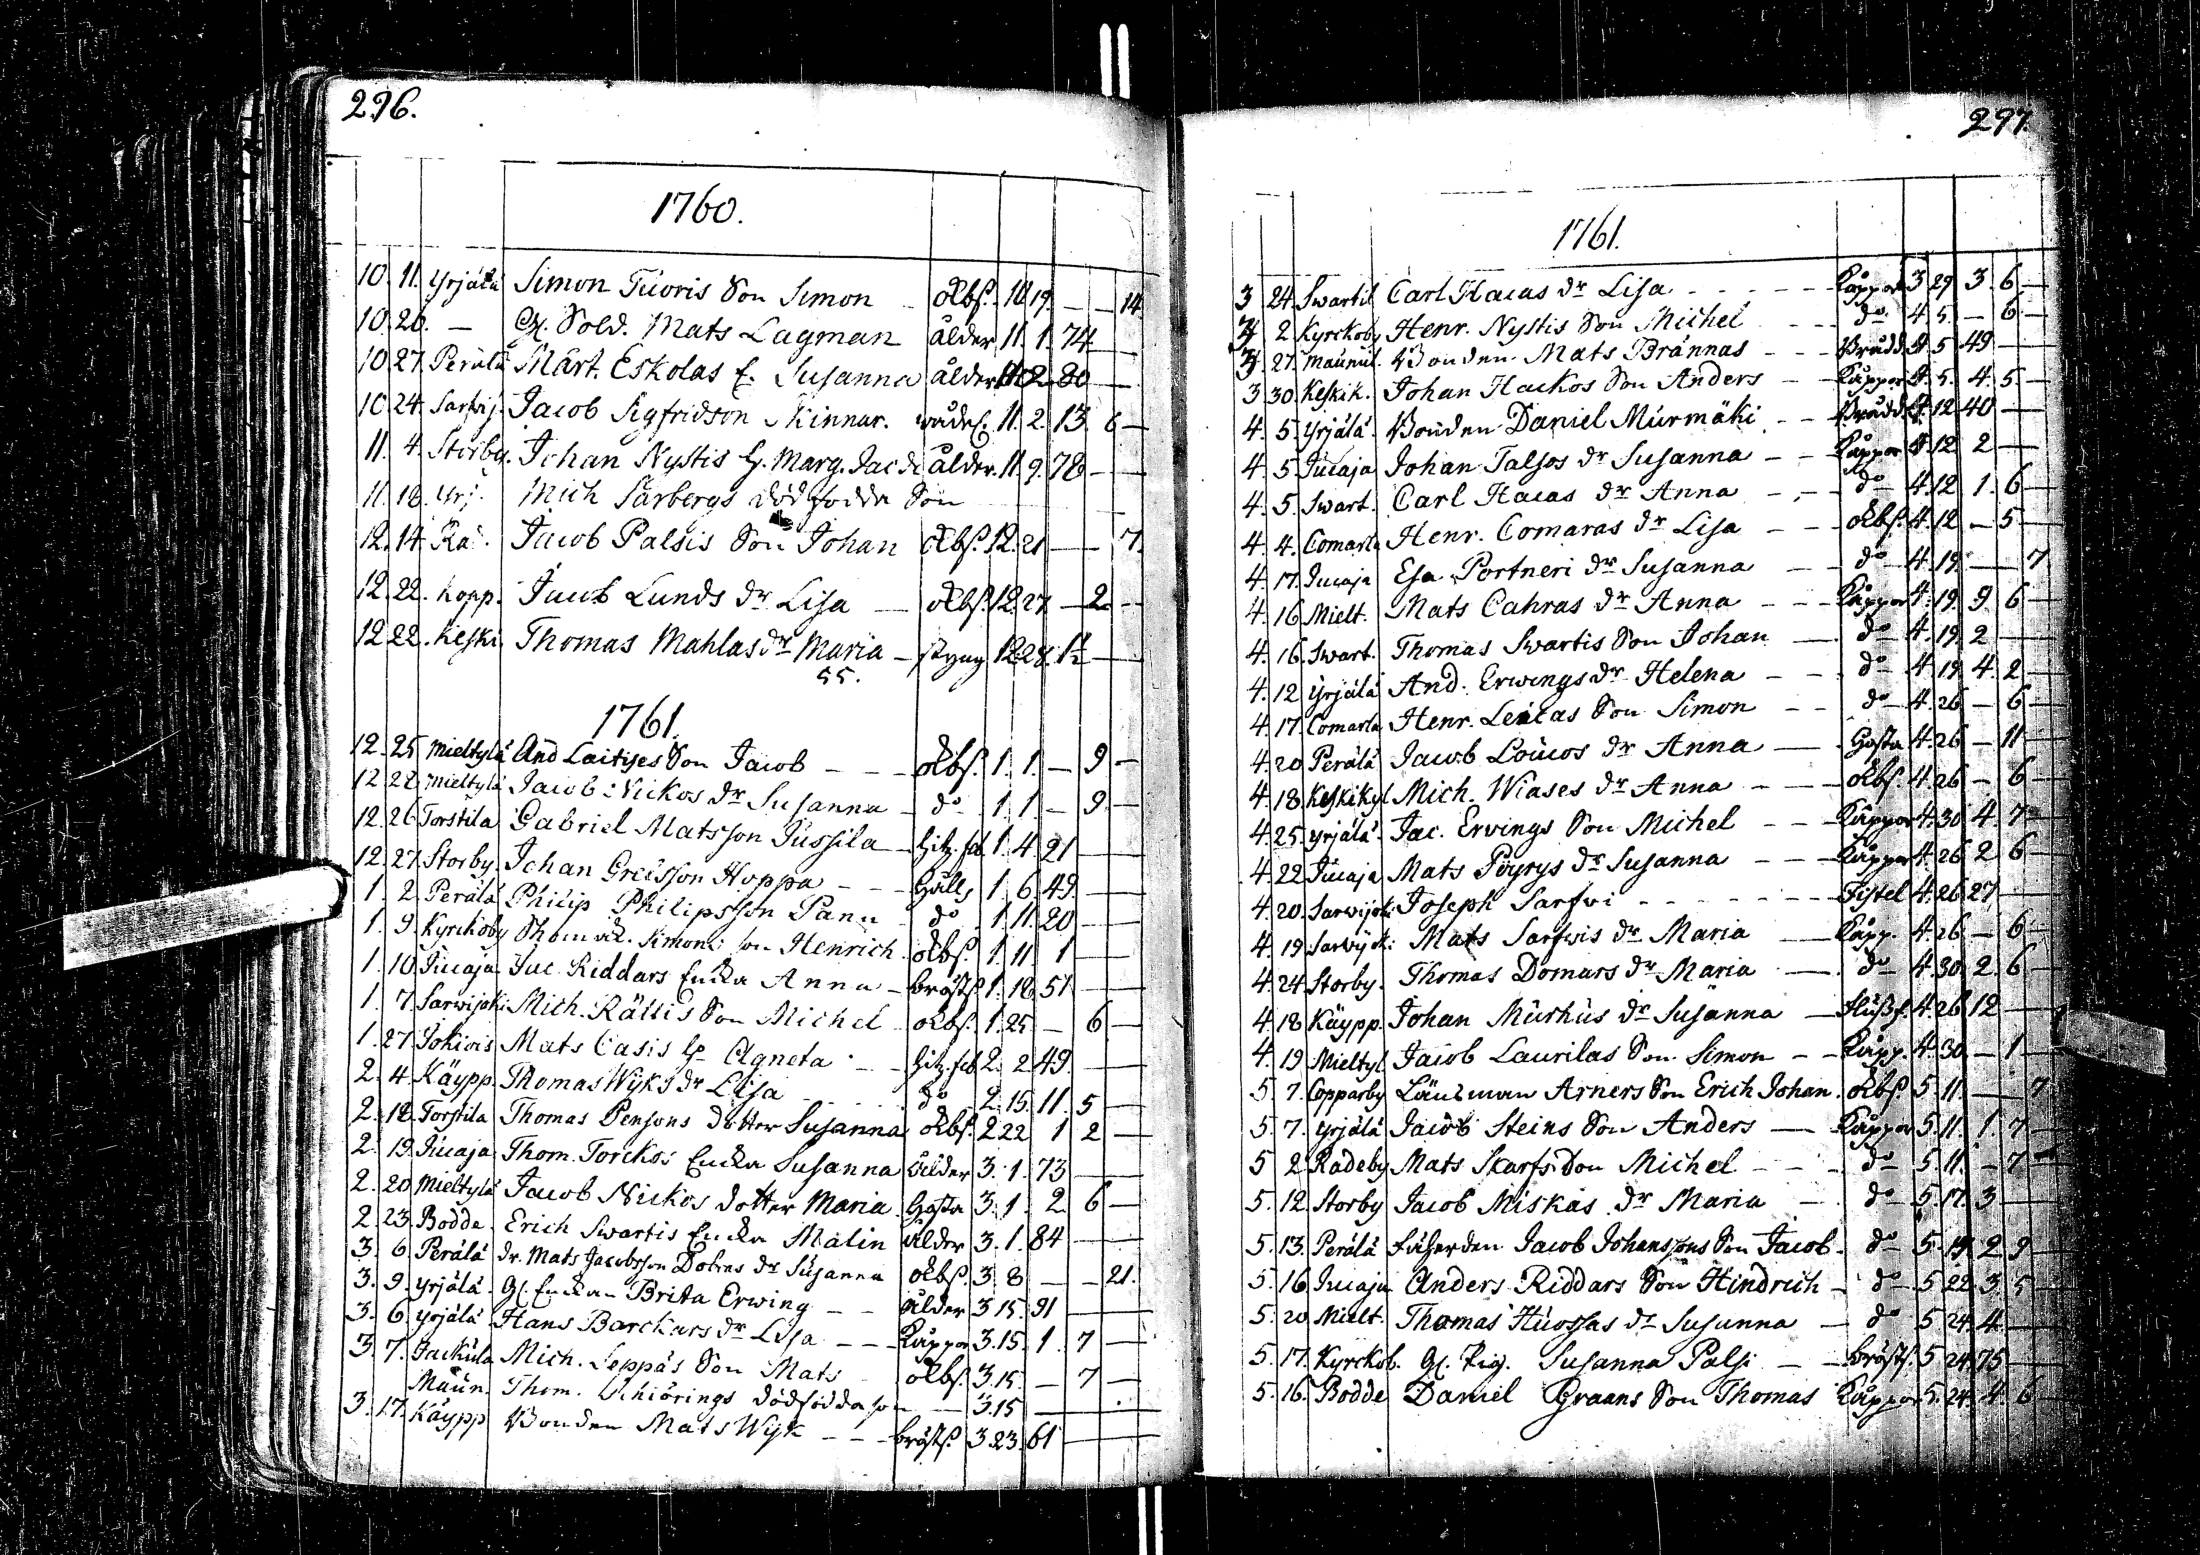 296.
1760.
10. 11. Yrjälä Simon Tuoris Son Simon — Obs. 10 19. — — 14
10. 20. — Gl. Sold. Mats Lagman ålder 11. 1. 74 —
10. 27. Perälä Mårt. Eskolas E. Susanna ålder 11 2 80 —
10. 24. Sarwij. Jacob Sigfridson Skinnar. 11. 2. 13. 6 —
11. 4. Storby. Johan Nystis H. Marg. Jac dr ålder. 11. 9. 78 — —
11. 18. Yrj. Mich Särbergs dödfödda Son
12. 14. Ra. Jacob Palsis Son Johan Obs. 12. 21 — — 7.
12. 22. Kopp. Jacob Lunds dr Lisa — Obs. 12. 27 — 2 —
12 22. Keski. Thomas Mahlas dr Maria — 12 28. 1½ —
55.
1761.
12. 25 Mieltylä And Laitises Son Jacob — — Obs. 1. 1. — 9 —
12 28 Mieltylä Jacob Nickos dr Susanna — do 1. 1 — 9 —
12. 26 Torstila Gabriel Matsson Jussila — Hitz. feb 1. 4 21 —
12. 27. Storby. Johan Grelsson Hoppa — — Håll 1. 6. 49. —
1. 2. Perälä Philip Philipsson Panu do 1. 11. 20 —
1. 9. Kyrckoby Simons son Henrich Obs. 1. 11 1 —
1. 10 Jucaja. Jac. Riddars Encka Anna — bröstf. 1. 18 51 —
1. 7. Sarwijoki Mich. Rättis Son Michel Obs. 1. 25 — 6 —
1. 27. Jokiois Mats Casis H. Agneta — Hitz. feb 2. 2 49. —
2. 4. Käypp. Thomas Wijks dr Lisa do 2. 15. 11. 5 —
2. 18. Torstila Thomas Pensons dotter Susanna Obs. 2 22 1 2 —
2. 19. Jucaja Thom. Torckos Encka Susanna ålder 3. 1. 73 —
2. 20 Mieltylä Jacob Nickos dotter Maria. Hosta 3. 1. 2 6 —
2. 23. Bodde. Erich Swartis Encka Malin ålder 3. 1. 84 —
3. 6. Perälä dr. Mats Jacobsson Dobras dr Susanna Obs. 3. 8 — — 21.
3. 9. Yrjälä. Gl. Enckan Brita Erwing — — ålder 3 15. 91
3. 6. Yrjälä Hans Barckars dr Lisa — — Kåppor 3. 15. 1. 7 —
3. 7. Jackula Mich. Seppäs Son Mats Obs. 3. 15. — 7 —
Maun. Thom. Schiörings dödfödda son — 3. 15 —
3. 17. Käypp Bonden Mats Wijk — — bröstf. 3 23. 61 —
297.
1761.
3 24 Swartil Carl Hacas dr Lisa - - - - Kåppor 3 29 3. 6 —
3 2 Kyrckoby Henr. Nystis Son Michel - - do 4 5. — 6 —
3 27. Maunul. Bonden Mats Brännas - - 4 5 49 —
3 30. Keskik. Johan Hackos Son Anders — Kåppor 4. 5. 4. 5 —
4. 5. Yrjälä. Bonden Daniel Murmäki - - 4. 12 40 —
4. 5 Jucaja Johan Talsos dr Susanna — Kåppor 4 12 2 —
4. 5. Swart. Carl Hacas dr Anna - - - do 4 12 1. 6 —
4. 4. Comarla Henr. Comaras dr Lisa — — Obs. 4. 12 — 5 —
4. 17. Jucaja Esa Portneri dr Susanna — do 4. 19. — — 7
4. 16 Mielt. Mats Cahras dr Anna - - - Kåppor 4. 19 9 6 —
4. 16. Swart. Thomas Swartis Son Johan — do 4. 19. 2 —
4. 12 Yrjälä And. Erwings dr Helena - - do 4 19 4. 2 —
4. 17. Comarla Henr. Leicas Son Simon - - do 4. 26 — 6 —
4. 20 Perälä Jacob Loucos dr Anna — Hosta 4. 26 — 11 —
4. 18. Keskikyl Mich. Wiases dr Anna - - - Obs. 4. 26 — 6 —
4. 25. Yrjälä. Jac. Ervings Son Michel - - Kåppor 4. 30 4. 7 —
4. 22 Jucaja Mats Pöyrys dr Susanna - - - Kåppor 4. 26 2 6 —
4. 20. Sarwijoki Joseph Sarfwi - - - - - - - Fistel 4. 26 27 —
4. 19 Sarwijoki Mats Sarfwis dr Maria — Kåpp. 4. 26 — 6 —
4. 24 Storby. Thomas Domars dr Maria — do 4. 30. 2. 6 —
4. 18 Käypp. Johan Murhus dr Susanna — Flussf. 4. 26 12 —
4. 19 Mieltyl Jacob Laurilas Son Simon - - Kåpp. 4. 30. — 1 —
5. 7. Copparby Länsman Arners Son Erich Johan. Obs. 5. 11. — — 7
5. 7. Yrjälä Jacob Steins Son Anders — Kåppor 5. 11. 1. 7 —
5 2 Radeby Mats Skarfs Son Michel - - - do 5. 11. — 7 —
5. 12. Storby Jacob Miskas dr Maria — do 5. 17. 3 —
5. 13. Perälä Jacob Johanssons Son Jacob. do 5. 19. 2 9 —
5. 16. Jucaja Anders Riddars Son Hindrich — do 5 22 3. 5 —
5. 20 Mielt. Thomas Huossas dr Susanna — do 5 24. 4 —
5. 17. Kyrckob. Gl. Pig. Susanna Palsi — — bröstf. 5 24 75 —
5. 16. Bodde Daniel Graans Son Thomas Kåppor 5. 24. 4. 6 —